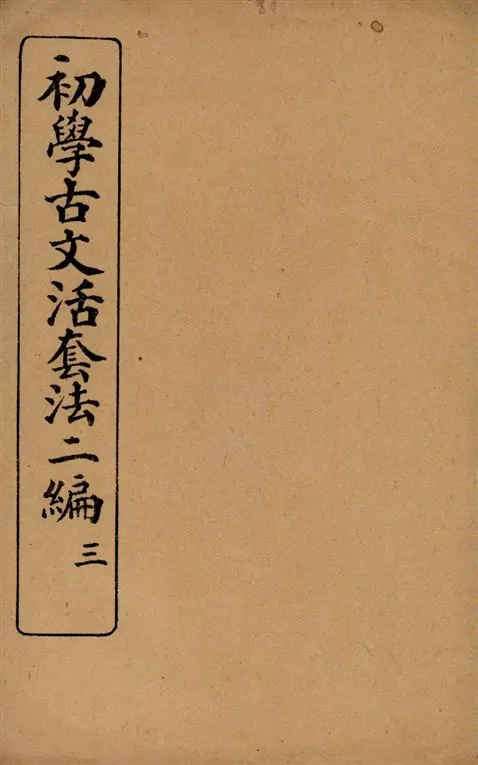 初學古文活套法二編
三